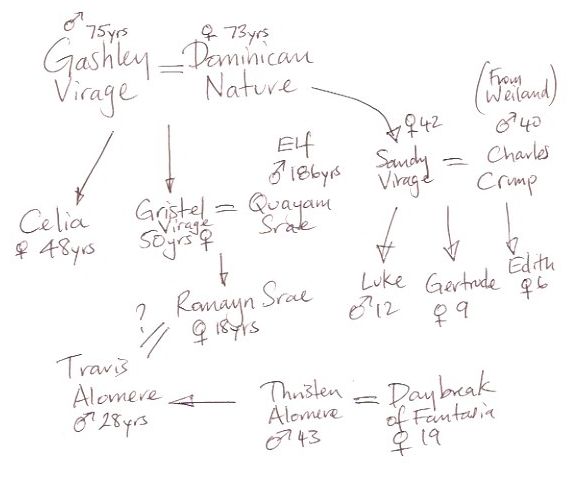 ♂ 75yrs
Gashley
Virage
=
♀ 73yrs
Dominican
Nature
(From
Weiland)
♂ 40
Charles
Crump
=
♀ 42
Sandy
Virage
Elf
♂ 186yrs
Quayam
Srae
=
Gristel
Virage
50yrs ♀
Celia
♀ 48yrs
Luke
♂ 12
Gertrude
♀ 9
Edith
♀ 6
Romayn Srae
♀ 18yrs
?
//
Travis
Alomere
♂ 28yrs
Thristen
Alomere
♂ 43
=
Daybreak
of Fantasia
♀ 19